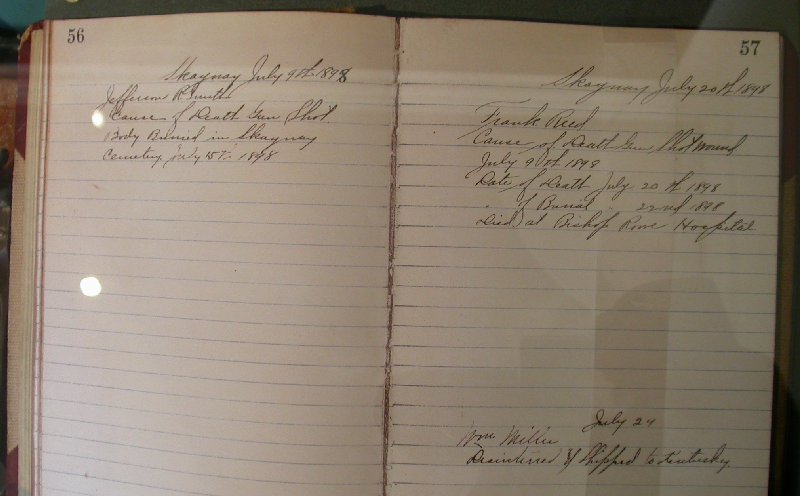 56
Skagway July 9th 1898
Jefferson R Smith
Cause of Death Gun Shot
Body Buried in Skagway
Cemetery July 1898
57
Skagway July 20th 1898
Frank Reed
Cause of Death Gun Shot wound
July 9th 1898
Date of Death July 20th 1898
" of Burial " 22nd 1898
Died at Bishop Rowe Hospital
July 24
Wm Miller
Disinterred & Shipped to Kentucky